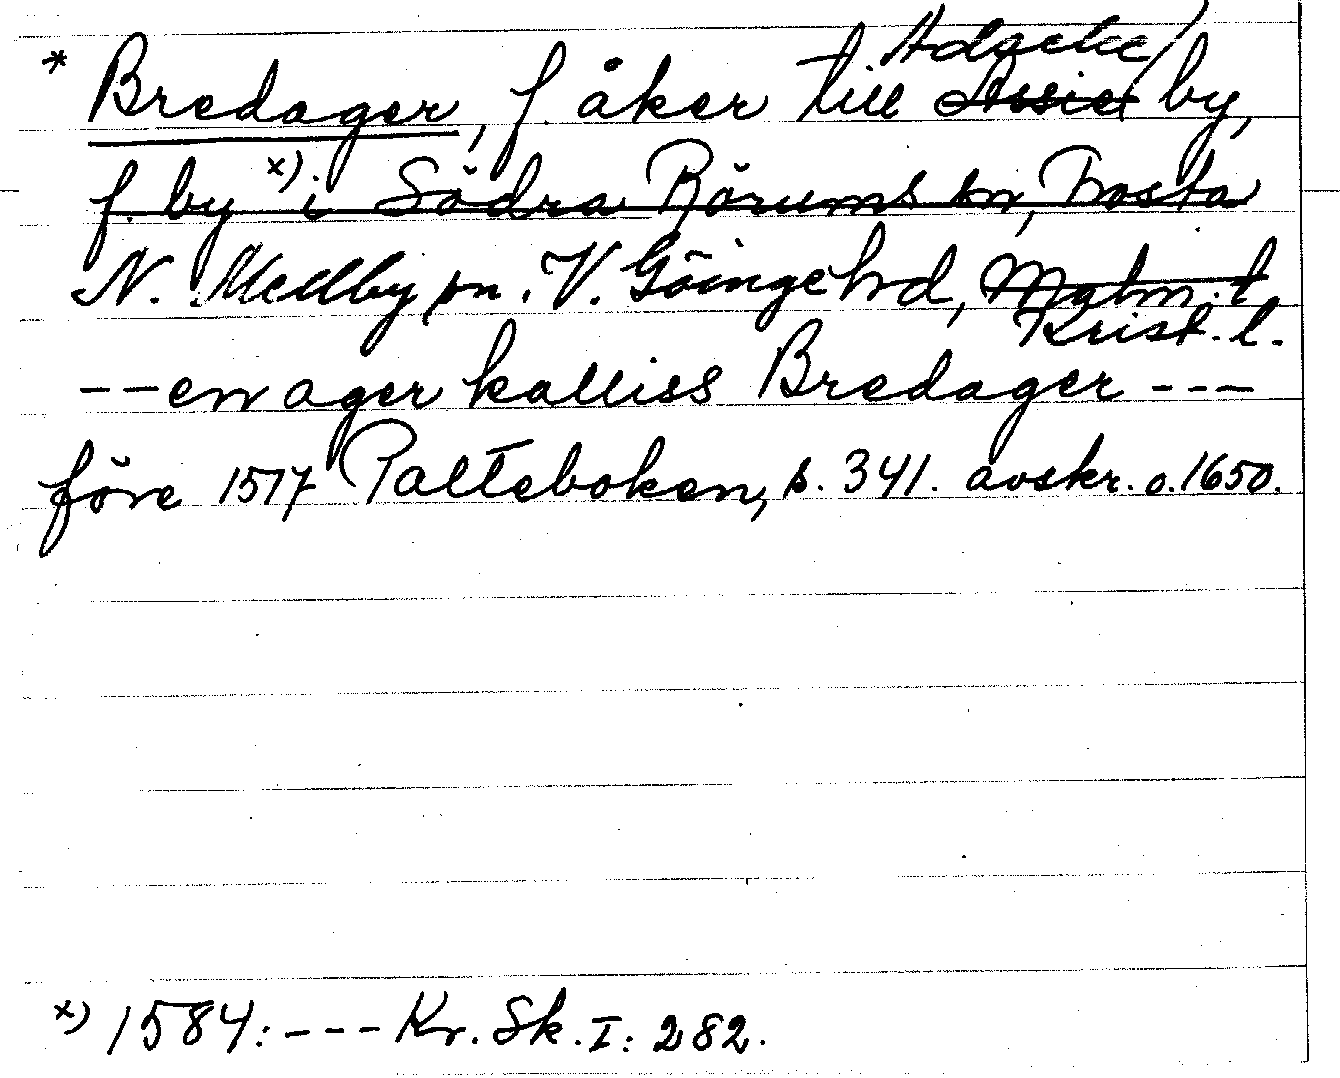 * Bredager, f. åker till Adseke/ by,
f. by x) i Södra Rörums sn, Frosta
N. Mellby sn. V. Göinge hd, Malm. l.
Krist. l.
--en ager kalliss Bredager ---
före 1517 Palteboken, s. 341. avskr. o. 1650.
x) 1584: --- Kr. Sk. I: 282.